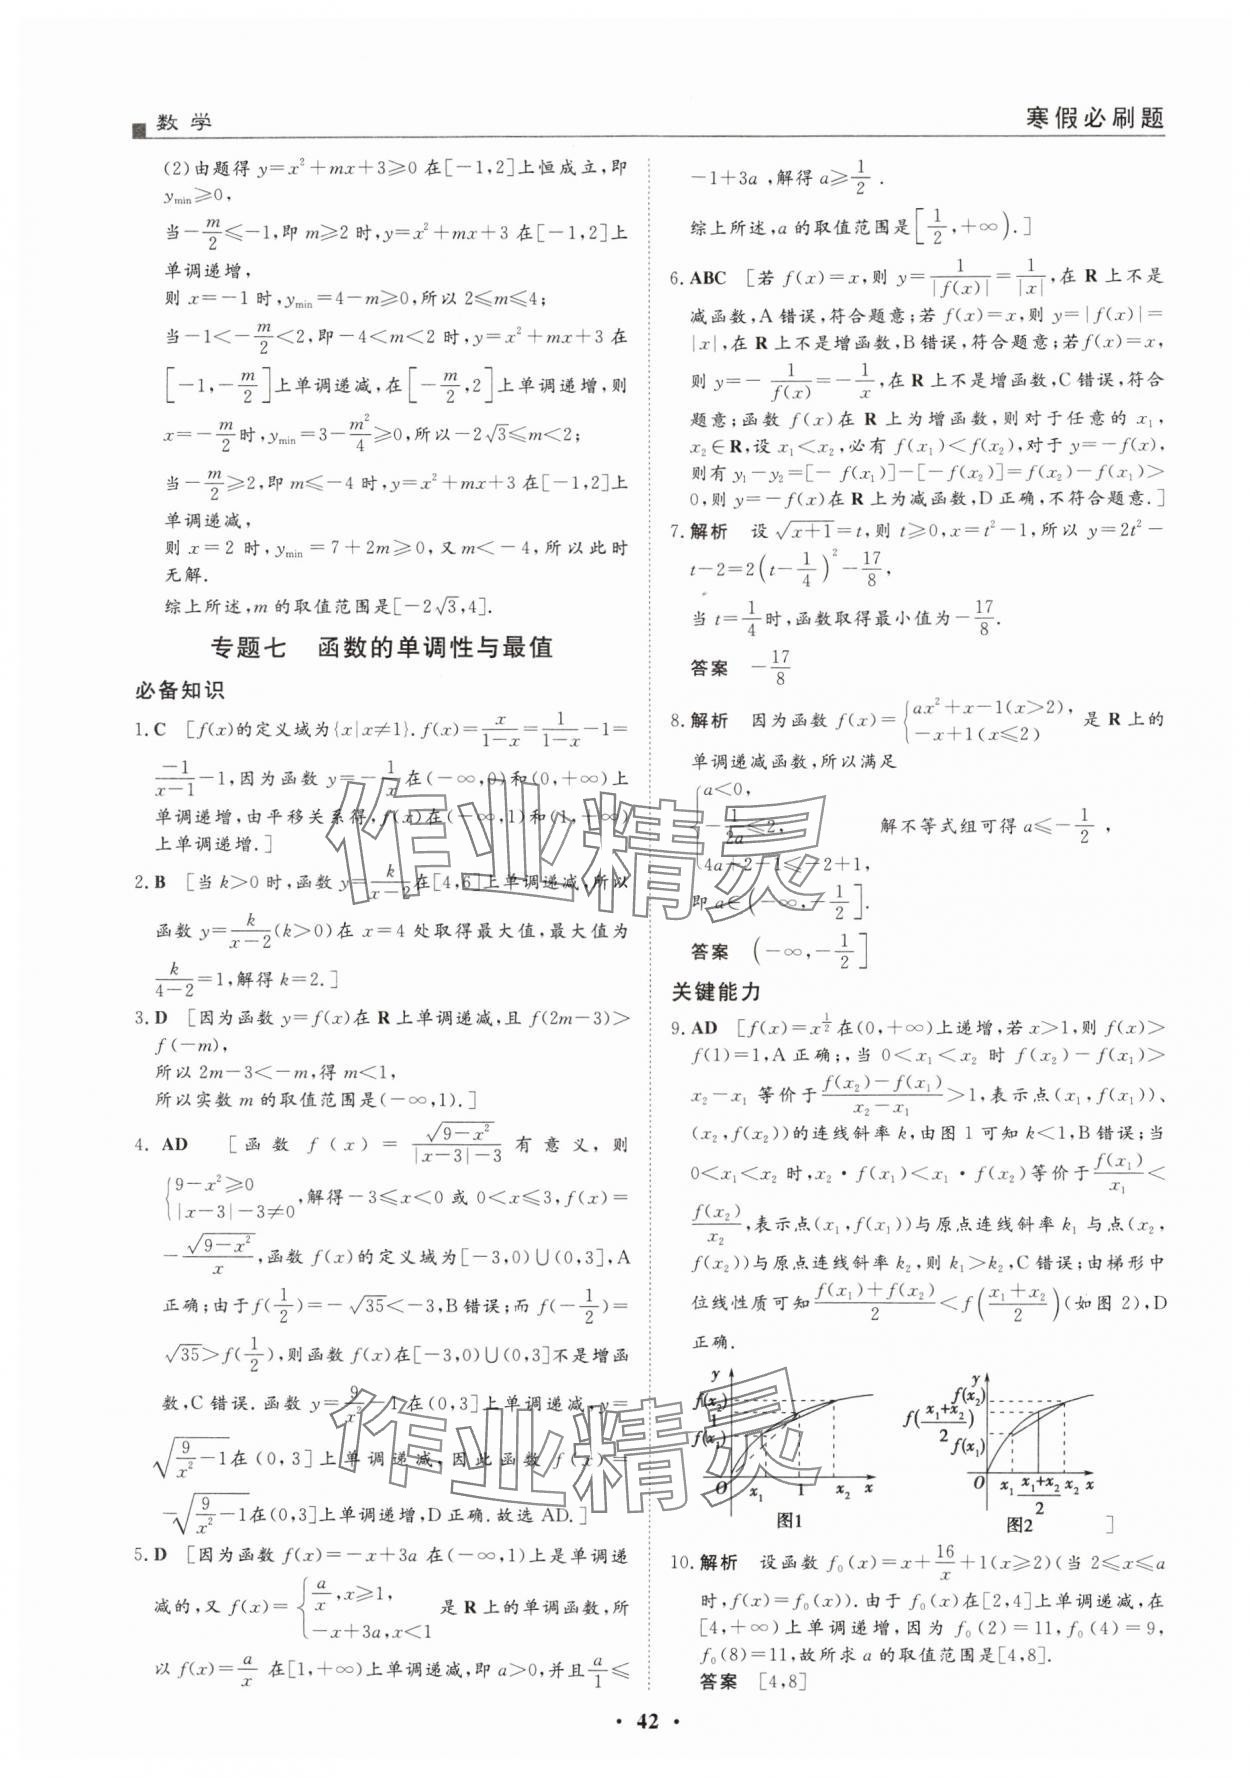 数学
寒假必刷题
(2)由题得 y=x²+mx+3≥0 在[-1,2]上恒成立,即
y_min≥0,
当-m/2≤-1,即 m≥2 时,y=x²+mx+3 在[-1,2]上
单调递增,
则 x=-1 时,y_min=4-m≥0,所以 2≤m≤4;
当-1<-m/2<2,即-4<m<2 时,y=x²+mx+3 在
[-1,-m/2]上单调递减,在[-m/2,2]上单调递增,则
x=-m/2时,y_min=3-m²/4≥0,所以-2√3≤m<2;
当-m/2≥2,即 m≤-4 时,y=x²+mx+3 在[-1,2]上
单调递减,
则 x=2 时,y_min=7+2m≥0,又 m<-4,所以此时
无解.
综上所述,m 的取值范围是[-2√3,4].
专题七 函数的单调性与最值
必备知识
1. C [f(x)的定义域为{x|x≠1}. f(x)=x/(1-x)=1/(1-x)-1=
-1/(x-1)-1,因为函数 y=-1/x在(-∞,0)和(0,+∞)上
单调递增,由平移关系得,f(x)在(-∞,1)和(1,+∞)
上单调递增.]
2. B [当 k>0 时,函数 y=k/(x-2)在[4,6]上单调递减,所以
函数 y=k/(x-2)(k>0)在 x=4 处取得最大值,最大值为
k/(4-2)=1,解得 k=2.]
3. D [因为函数 y=f(x)在 R 上单调递减,且 f(2m-3)>
f(-m),
所以 2m-3<-m,得 m<1,
所以实数 m 的取值范围是(-∞,1).]
4. AD [函数 f(x)=√(9-x²)/(|x-3|-3)有意义,则
{9-x²≥0
|x-3|-3≠0,解得-3≤x<0 或 0<x≤3,f(x)=
-√(9-x²)/x,函数 f(x)的定义域为[-3,0)∪(0,3],A
正确;由于 f(1/2)=-√35<-3,B 错误;而 f(-1/2)=
√35>f(1/2),则函数 f(x)在[-3,0)∪(0,3]不是增函
数,C 错误. 函数 y=9/x²-1 在(0,3]上单调递减,y=
√(9/x²-1)在(0,3]上单调递减,因此函数 f(x)=
-√(9/x²-1)在(0,3]上单调递增,D 正确. 故选 AD.]
5. D [因为函数 f(x)=-x+3a 在(-∞,1)上是单调递
减的,又 f(x)={a/x,x≥1,
-x+3a,x<1 是 R 上的单调函数,所
以 f(x)=a/x 在[1,+∞)上单调递减,即 a>0,并且a/1≤
-1+3a,解得 a≥1/2.
综上所述,a 的取值范围是[1/2,+∞).]
6. ABC [若 f(x)=x,则 y=1/|f(x)|=1/|x|,在 R 上不是
减函数,A 错误,符合题意;若 f(x)=x,则 y=|f(x)|=
|x|,在 R 上不是增函数,B 错误,符合题意;若 f(x)=x,
则 y=-1/f(x)=-1/x,在 R 上不是增函数,C 错误,符合
题意;函数 f(x)在 R 上为增函数,则对于任意的 x₁,
x₂∈R,设 x₁<x₂,必有 f(x₁)<f(x₂),对于 y=-f(x),
则有 y₁-y₂=[-f(x₁)]-[-f(x₂)]=f(x₂)-f(x₁)>
0,则 y=-f(x)在 R 上为减函数,D 正确,不符合题意.]
7. 解析 设√(x+1)=t,则 t≥0,x=t²-1,所以 y=2t²-
t-2=2(t-1/4)²-17/8,
当 t=1/4时,函数取得最小值为-17/8.
答案 -17/8
8. 解析 因为函数 f(x)={ax²+x-1(x>2),
-x+1(x≤2) 是 R 上的
单调递减函数,所以满足
{a<0,
-1/2a≤2, 解不等式组可得 a≤-1/2,
4a+2-1≤-2+1,
即 a∈(-∞,-1/2].
答案 (-∞,-1/2]
关键能力
9. AD [f(x)=x^(1/2)在(0,+∞)上递增,若 x>1,则 f(x)>
f(1)=1,A 正确;,当 0<x₁<x₂ 时 f(x₂)-f(x₁)>
x₂-x₁ 等价于(f(x₂)-f(x₁))/(x₂-x₁)>1,表示点(x₁,f(x₁))、
(x₂,f(x₂))的连线斜率 k,由图 1 可知 k<1,B 错误;当
0<x₁<x₂ 时,x₂·f(x₁)<x₁·f(x₂)等价于f(x₁)/x₁<
f(x₂)/x₂,表示点(x₁,f(x₁))与原点连线斜率 k₁ 与点(x₂,
f(x₂))与原点连线斜率 k₂,则 k₁>k₂,C 错误;由梯形中
位线性质可知(f(x₁)+f(x₂))/2<f((x₁+x₂)/2)(如图 2),D
正确.
y
f(x₂)
1
f(x₁)
O x₁ 1 x₂ x
图1
y
f(x₂)
f((x₁+x₂)/2)
f(x₁)
O x₁ (x₁+x₂)/2 x₂ x
图2 ]
10. 解析 设函数 f₀(x)=x+16/x+1(x≥2)(当 2≤x≤a
时,f(x)=f₀(x)). 由于 f₀(x)在[2,4]上单调递减,在
[4,+∞)上单调递增,因为 f₀(2)=11,f₀(4)=9,
f₀(8)=11,故所求 a 的取值范围是[4,8].
答案 [4,8]
作业精灵
作业精灵
· 42 ·